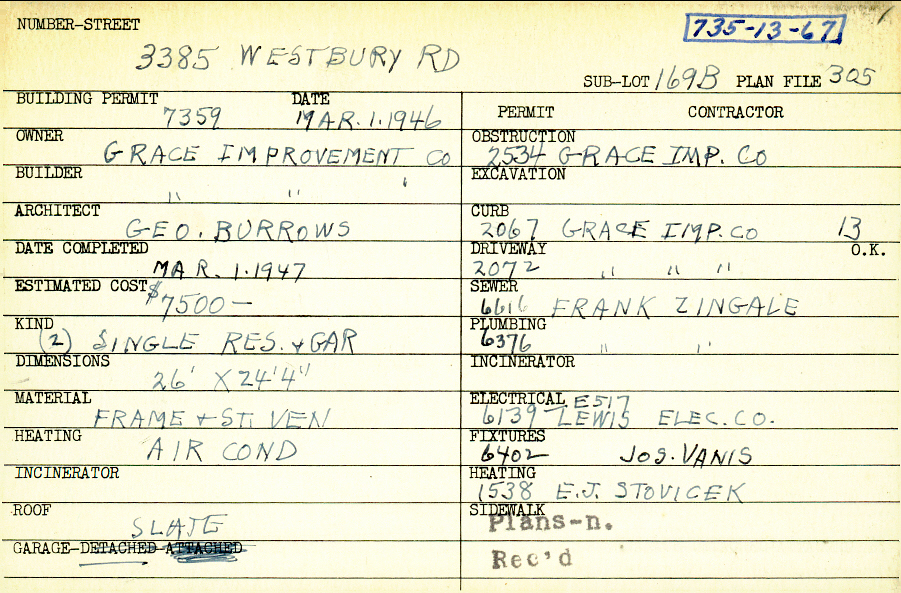 NUMBER-STREET
735-13-67
3385 WESTBURY RD
SUB-LOT 169B PLAN FILE 305
BUILDING PERMIT DATE
7359 MAR. 1. 1946
PERMIT CONTRACTOR
OWNER
GRACE IMPROVEMENT CO
OBSTRUCTION
2534 GRACE IMP. CO
BUILDER
" "
EXCAVATION
ARCHITECT
GEO. BURROWS
CURB
2067 GRACE IMP. CO 13
DATE COMPLETED
MAR. 1. 1947
DRIVEWAY O.K.
2072 " " "
ESTIMATED COST
$7500 —
SEWER
6616 FRANK ZINGALE
KIND
(2) SINGLE RES. + GAR
PLUMBING
6376 " "
DIMENSIONS
26' X 24'4"
INCINERATOR
MATERIAL
FRAME + ST. VEN
ELECTRICAL E517
6139 LEWIS ELEC. CO.
HEATING
AIR COND
FIXTURES
6402 JOS. VANIS
INCINERATOR
HEATING
1538 E.J. STOVICEK
ROOF
SLATE
SIDEWALK
Plans-n.
GARAGE-DETACHED-ATTACHED
Rec'd